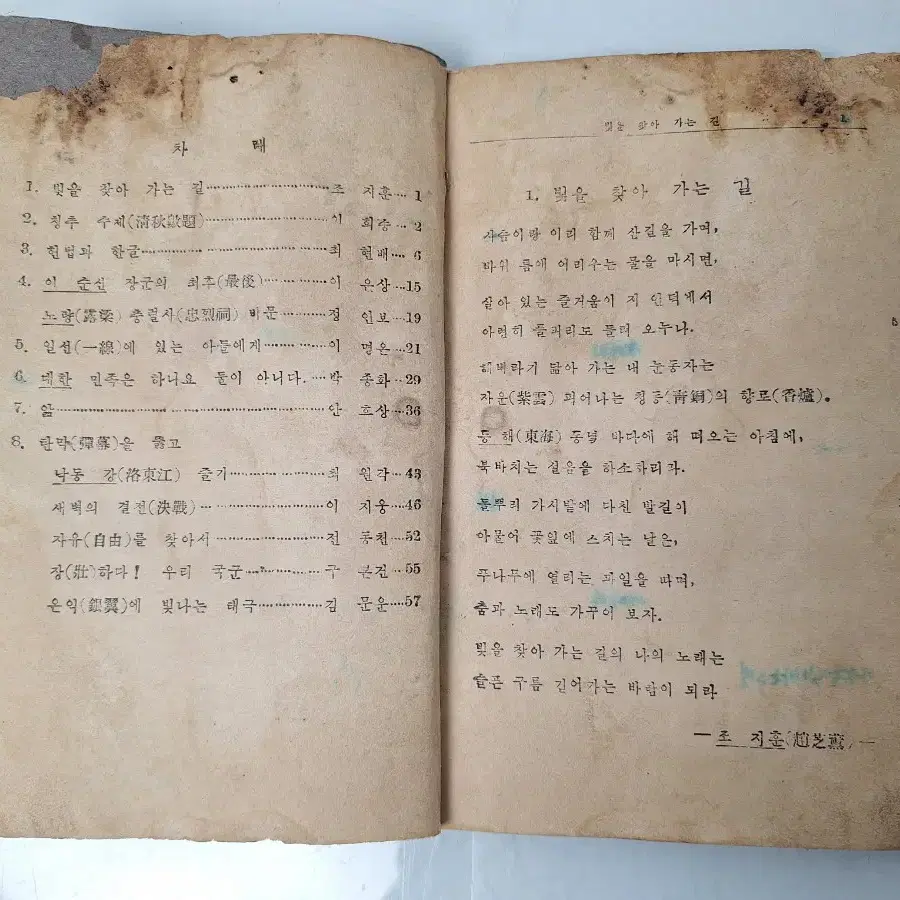 차 례
1. 빛을 찾아 가는 길………………조 지훈…1
2. 청추 수제(清秋數題)………………이 희승…2
3. 헌법과 한글………………최 현배…6
4. 이 순신 장군의 최후(最後)…………이 은상…15
노량(露梁) 충렬사(忠烈祠) 비문……정 인보…19
5. 일선(一線)에 있는 아들에게………이 명온…21
6. 대한 민족은 하나요 둘이 아니다.…박 종화…29
7. 앎………………안 호상…36
8. 탄막(彈幕)을 뚫고
낙동 강(洛東江) 줄기………최 원각…43
새벽의 결전(決戰)………이 지웅…46
자유(自由)를 찾아서………전 동천…52
장(壯)하다! 우리 국군………구 본건…55
은익(銀翼)에 빛나는 태극………김 문운…57
빛을 찾아 가는 길
1. 빛을 찾아 가는 길
사슴이랑 이리 함께 산길을 가며,
바위 틈에 어리우는 물을 마시면,
살아 있는 즐거움이 저 언덕에서
아련히 풀피리도 들려 오누나.
해바라기 닮아 가는 내 눈동자는
자운(紫雲) 피어나는 청동(靑銅)의 향로(香爐)。
동 해(東海) 동녘 바다에 해 떠오는 아침에,
북바치는 설음을 하소하리라.
돌뿌리 가시밭에 다친 발길이
아물어 꽃잎에 스치는 날은,
푸나무에 열리는 과일을 따며,
춤과 노래도 가꾸어 보자.
빛을 찾아 가는 길의 나의 노래는
슬픈 구름 걷어가는 바람이 되라
—조 지훈(趙芝薰)—